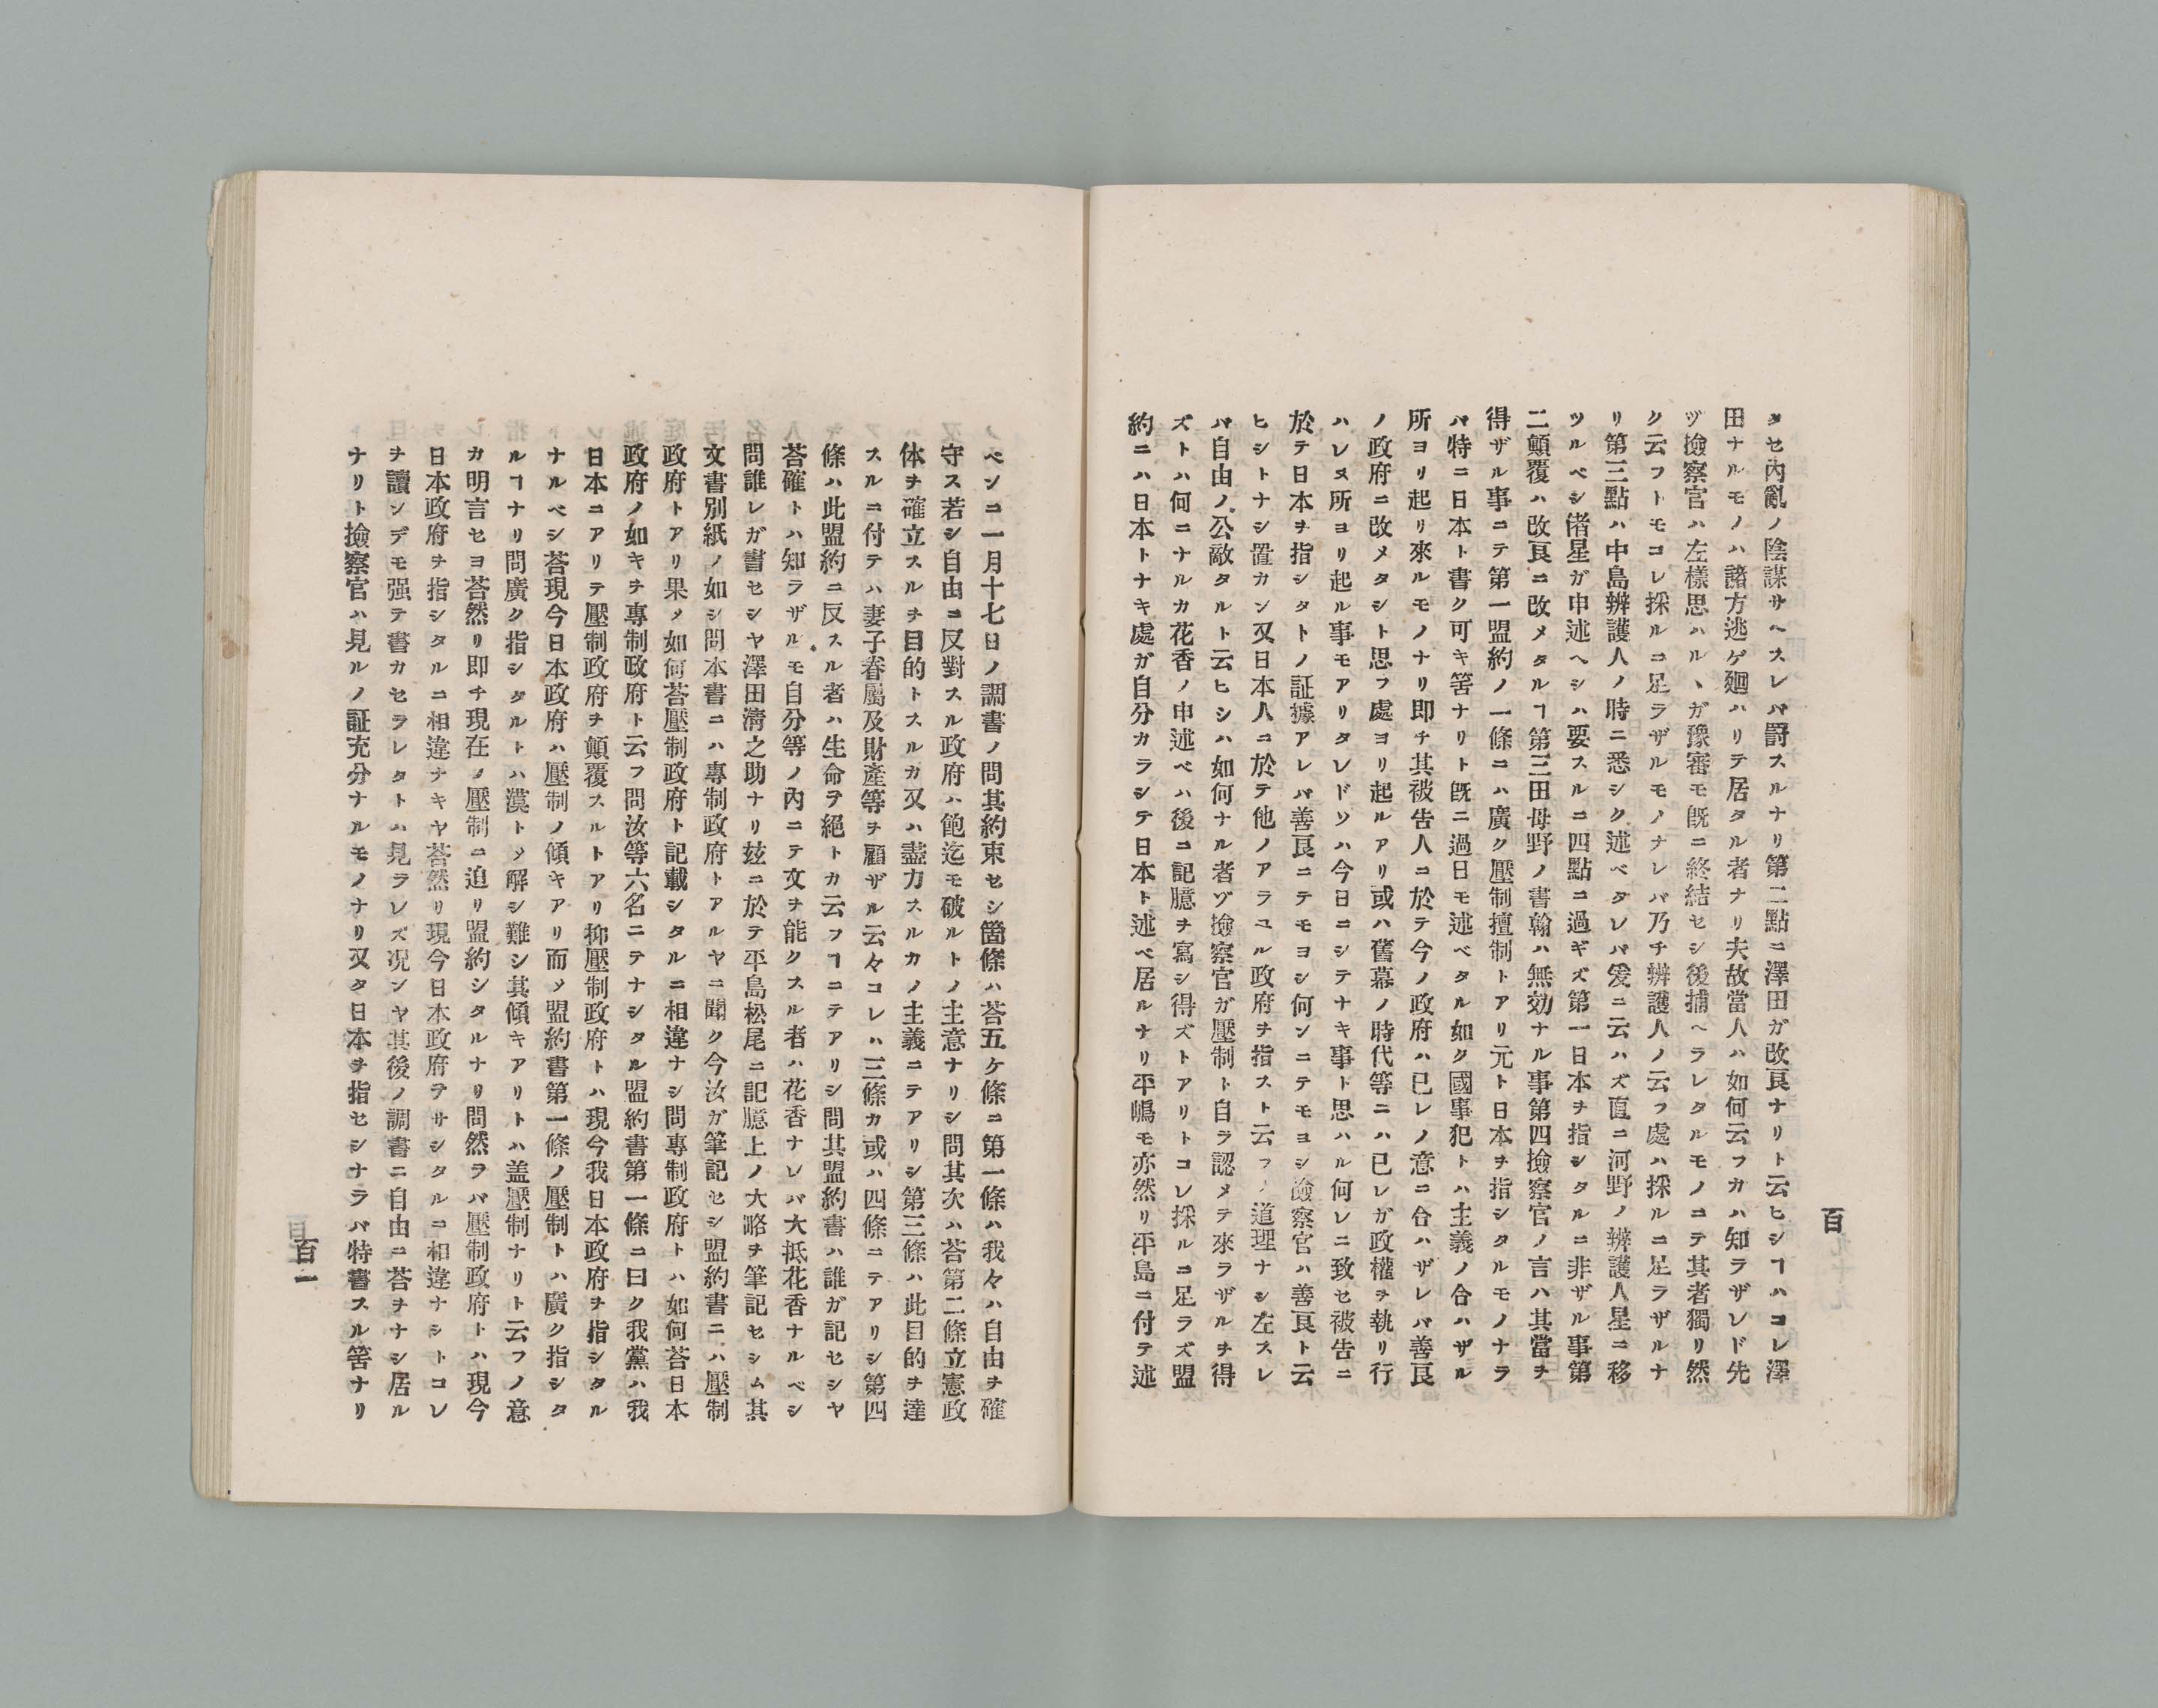 百
タセ內亂ノ陰謀サヘスレバ罸スルナリ第二點ニ澤田ガ改良ナリト云ヒシヿハコレ澤
田ナルモノハ諸方逃ゲ廻ハリテ居タル者ナリ夫故當人ハ如何云フカハ知ラザレド先
ヅ撿察官ハ左樣思ハルヽガ豫審モ旣ニ終結セシ後捕ヘラレタルモノニテ其者獨リ然
ク云フトモコレ採ルニ足ラザルモノナレバ乃チ辨護人ノ云フ處ハ採ルニ足ラザルナ
リ第三點ハ中島辨護人ノ時ニ悉シク述ベタレバ爰ニ云ハズ直ニ河野ノ辨護人星ニ移
ツルベシ偖星ガ申述ヘシハ要スルニ四點ニ過ギズ第一日本ヲ指シタルニ非ザル事第
二顚覆ハ改良ニ改メタルヿ第三田母野ノ書翰ハ無効ナル事第四撿察官ノ言ハ其當ヲ
得ザル事ニテ第一盟約ノ一條ニハ廣ク壓制擅制トアリ元ト日本ヲ指シタルモノナラ
バ特ニ日本ト書ク可キ筈ナリト旣ニ過日モ述ベタル如ク國事犯トハ主義ノ合ハザル
所ヨリ起リ來ルモノナリ即チ其被告人ニ於テ今ノ政府ハ已レノ意ニ合ハザレバ善良
ノ政府ニ改メタシト思フ處ヨリ起ルアリ或ハ舊幕ノ時代等ニハ已レガ政權ヲ執リ行
ハレヌ所ヨリ起ル事モアリタレドソハ今日ニシテナキ事ト思ハル何レニ致セ被告ニ
於テ日本ヲ指シタトノ証據アレバ善良ニテモヨシ何ンニテモヨシ撿察官ハ善良ト云
ヒシトナシ置カン又日本人ニ於テ他ノアラユル政府ヲ指スト云フノ道理ナシ左スレ
バ自由ノ公敵タルト云ヒシハ如何ナル者ゾ撿察官ガ壓制ト自ラ認メテ來ラザルヲ得
ズトハ何ニナルカ花香ノ申述ベハ後ニ記臆ヲ寫シ得ズトアリトコレ採ルニ足ラズ盟
約ニハ日本トナキ處ガ自分カラシテ日本ト述ベ居ルナリ平嶋モ亦然リ平島ニ付テ述
ベンニ一月十七日ノ調書ノ問其約束セシ箇條ハ荅五ケ條ニ第一條ハ我々ハ自由ヲ確
守ス若シ自由ニ反對スル政府ハ飽迄モ破ルトノ主意ナリシ問其次ハ荅第二條立憲政
体ヲ確立スルヲ目的トスルカ又ハ盡力スルカノ主義ニテアリシ第三條ハ此目的ヲ達
スルニ付テハ妻子眷屬及財產等ヲ顧ザル云々コレハ三條カ或ハ四條ニテアリシ第四
條ハ此盟約ニ反スル者ハ生命ヲ絕トカ云フヿニテアリシ問其盟約書ハ誰ガ記セシヤ
荅確トハ知ラザルモ自分等ノ內ニテ文ヲ能クスル者ハ花香ナレバ大抵花香ナルベシ
問誰レガ書セシヤ澤田淸之助ナリ玆ニ於テ平島松尾ニ記臆上ノ大略ヲ筆記セシム其
文書別紙ノ如シ問本書ニハ專制政府トアルヤニ聞ク今汝ガ筆記セシ盟約書ニハ壓制
政府トアリ果メ如何荅壓制政府ト記載シタルニ相違ナシ問專制政府トハ如何荅日本
政府ノ如キヲ專制政府ト云フ問汝等六名ニテナシタル盟約書第一條ニ曰ク我黨ハ我
日本ニアリテ壓制政府ヲ顚覆スルトアリ抑壓制政府トハ現今我日本政府ヲ指シタル
ナルベシ荅現今日本政府ハ壓制ノ傾キアリ而メ盟約書第一條ノ壓制トハ廣ク指シタ
ルヿナリ問廣ク指シタルトハ漠トメ解シ難シ其傾キアリトハ盖壓制ナリト云フノ意
カ明言セヨ荅然リ即チ現在ノ壓制ニ迫リ盟約シタルナリ問然ラバ壓制政府トハ現今
日本政府ヲ指シタルニ相違ナキヤ荅然リ現今日本政府ヲサシタルニ相違ナシトコレ
ヲ讀ンデモ强テ書カセラレタトハ見ラレズ况ンヤ其後ノ調書ニ自由ニ荅ヲナシ居ル
ナリト撿察官ハ見ルノ証充分ナルモノナリ又タ日本ヲ指セシナラバ特書スル筈ナリ
百一